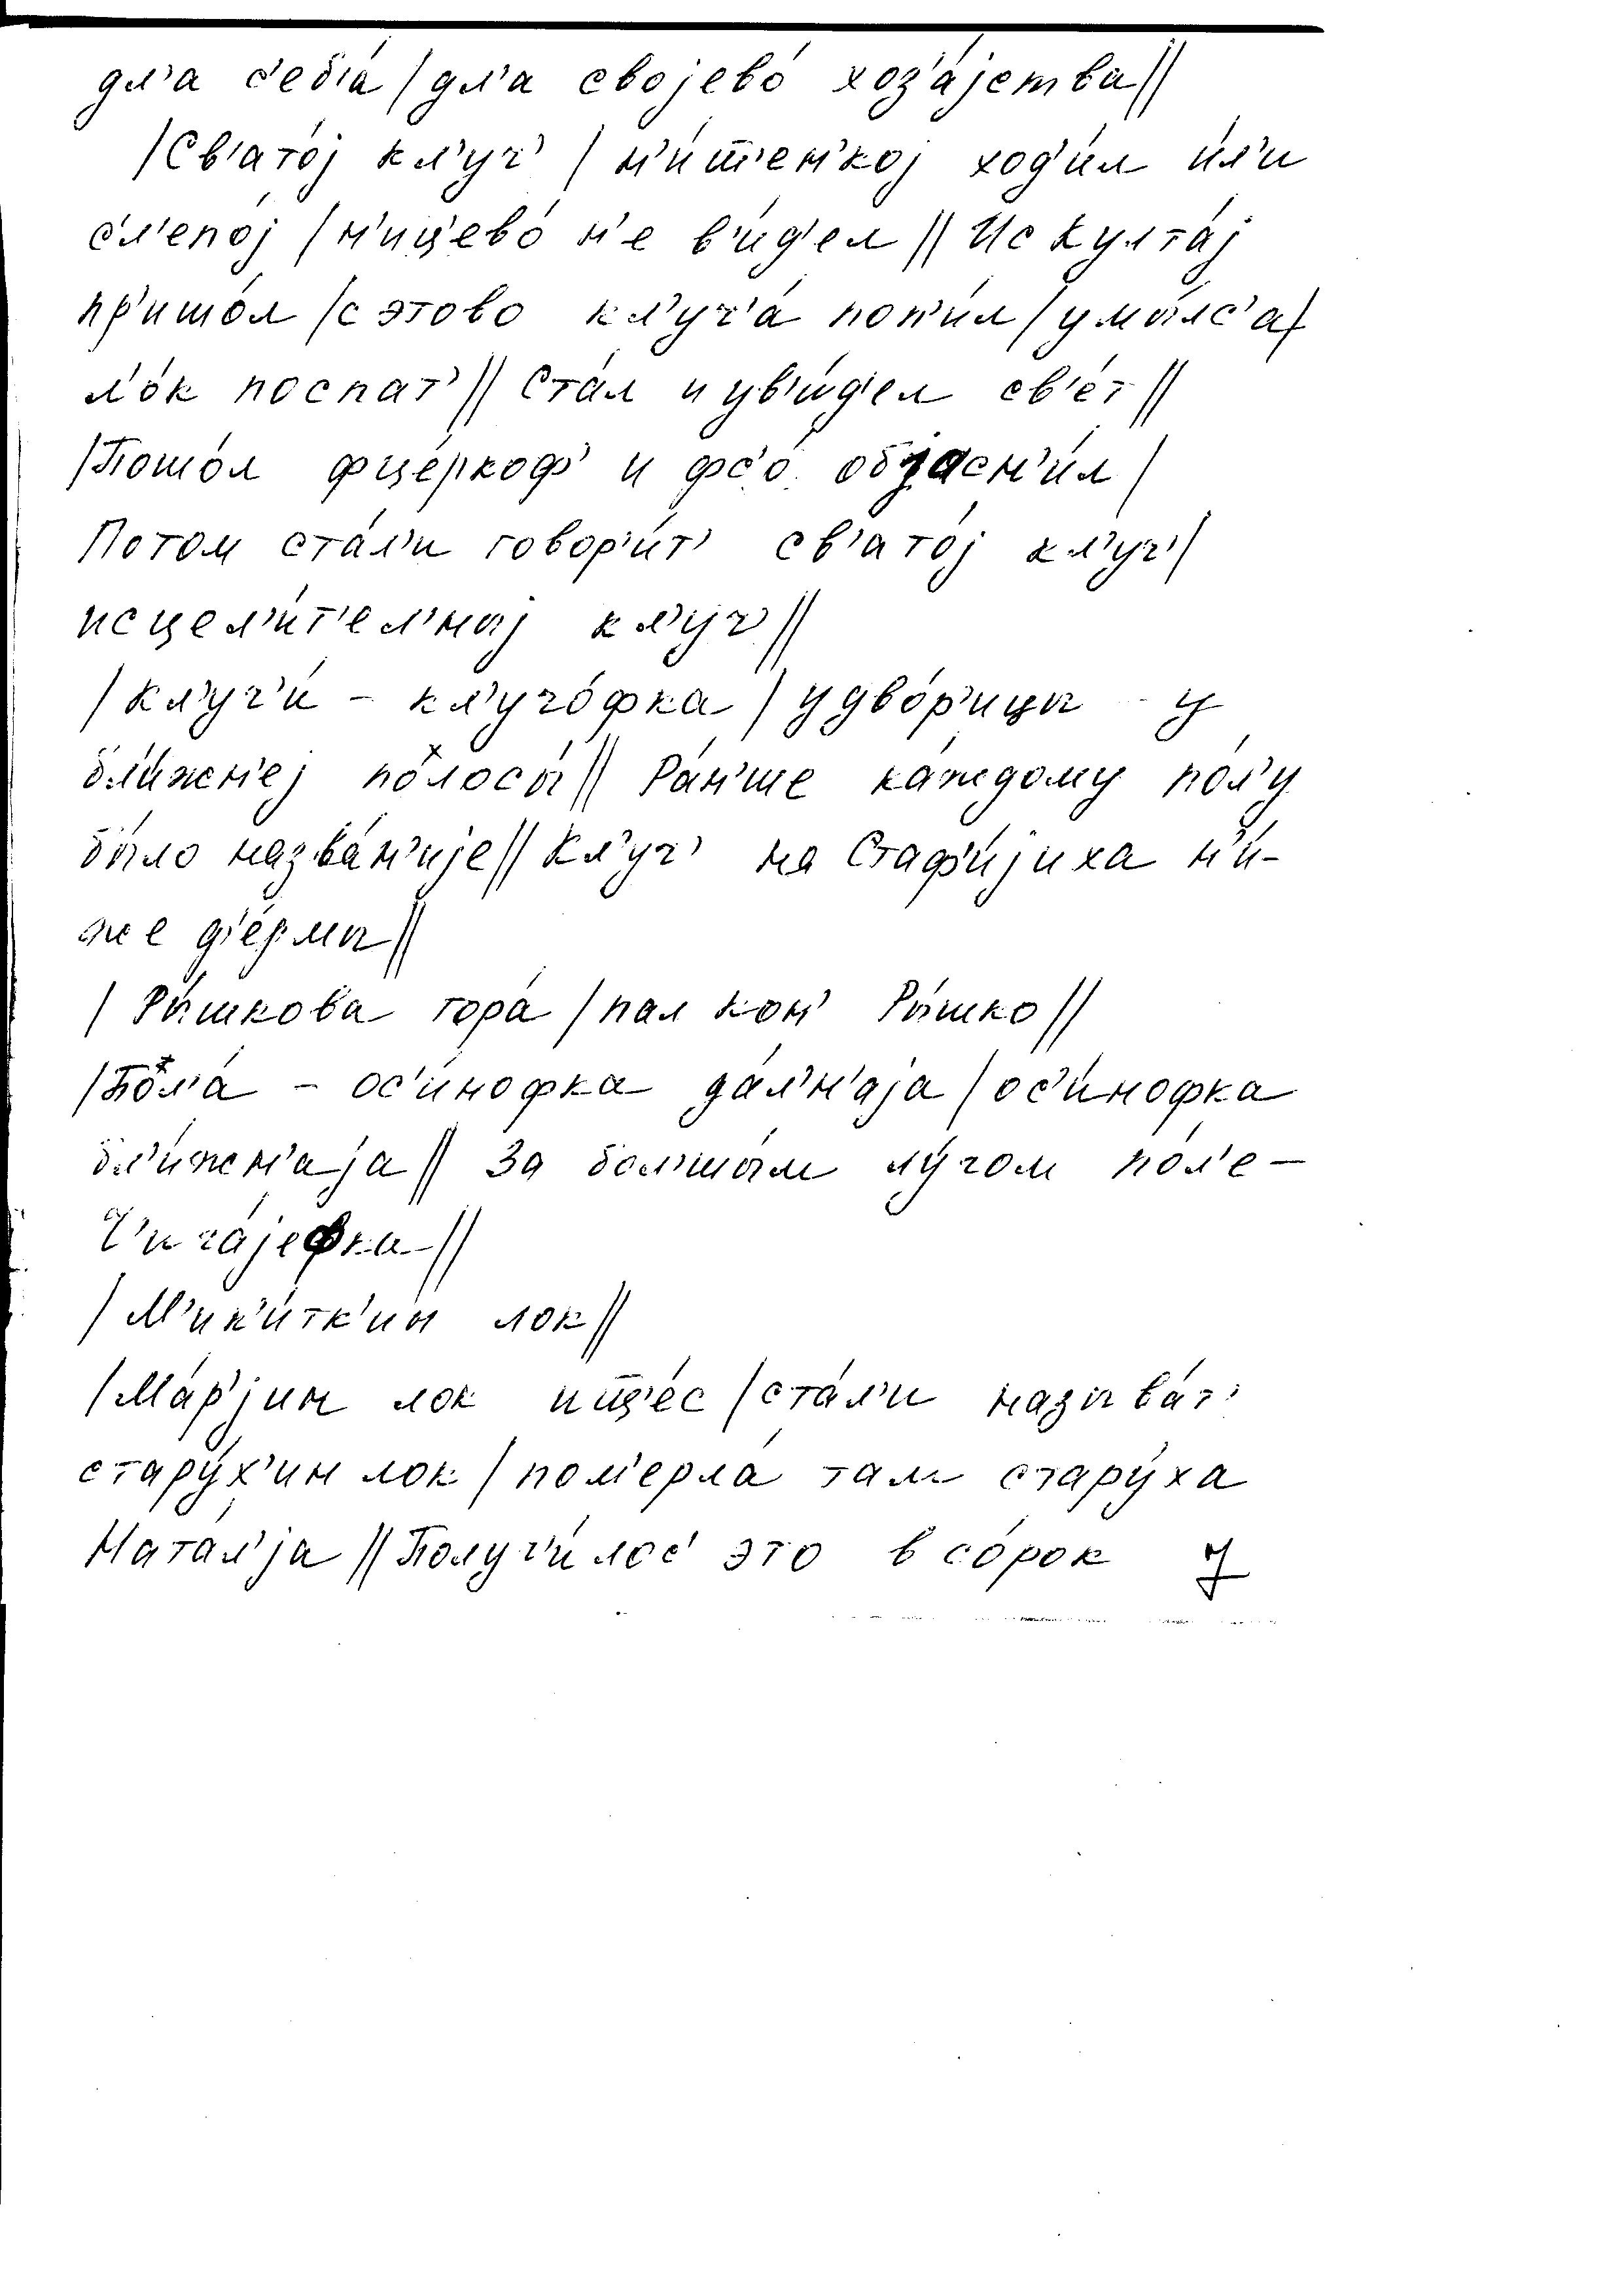 дл'а с'еб'а́ / дл'а својево́ хоз'а́јства //
/ Св'ато́ј кл'уч' / н'и́щ'ен'кој ход'и́л и́л'и
сл'епо́ј / н'ицево́ н'е в'и́д'ел // Ис Култа́ј
пр'ишо́л / с этово кл'уч'а́ поп'и́л / умы́лс'а /
л'о́к поспат' // Ста́л и ув'и́д'ел св'е́т //
/ Пошо́л фце́ркоф' и фс'о́ објасн'и́л /
Потом ста́л'и говор'и́т' св'ато́ј кл'уч' /
исцел'и́т'ел'ныј кл'уч' //
/ Кл'уч'и́ - кл'учо́фка / у дво́р'ицы у
бл'и́жн'еј по̂лосы́ // Ра́н'ше ка́ждому по́л'у
бы́ло назва́н'ије // Кл'уч' на Стаф'и́јиха н'и́-
же ф'е́рмы //
/ Ры́шкова гора́ / пал кон' Ры́шко //
/ По̂л'а́ - ос'и́нофка да́л'н'аја / ос'и́нофка
бл'и́жн'аја // За бол'шы́м лу́гом по́л'е -
Ч'ига́јефка //
/ М'ик'и́тк'ин лок //
/ Ма́р'јин лок ищ'е́с / ста́л'и называ́т'
стару́х'ин лок / пом'ерла́ там стару́ха
Ната́л'ја // Получ'и́лос' это в со́рок 7